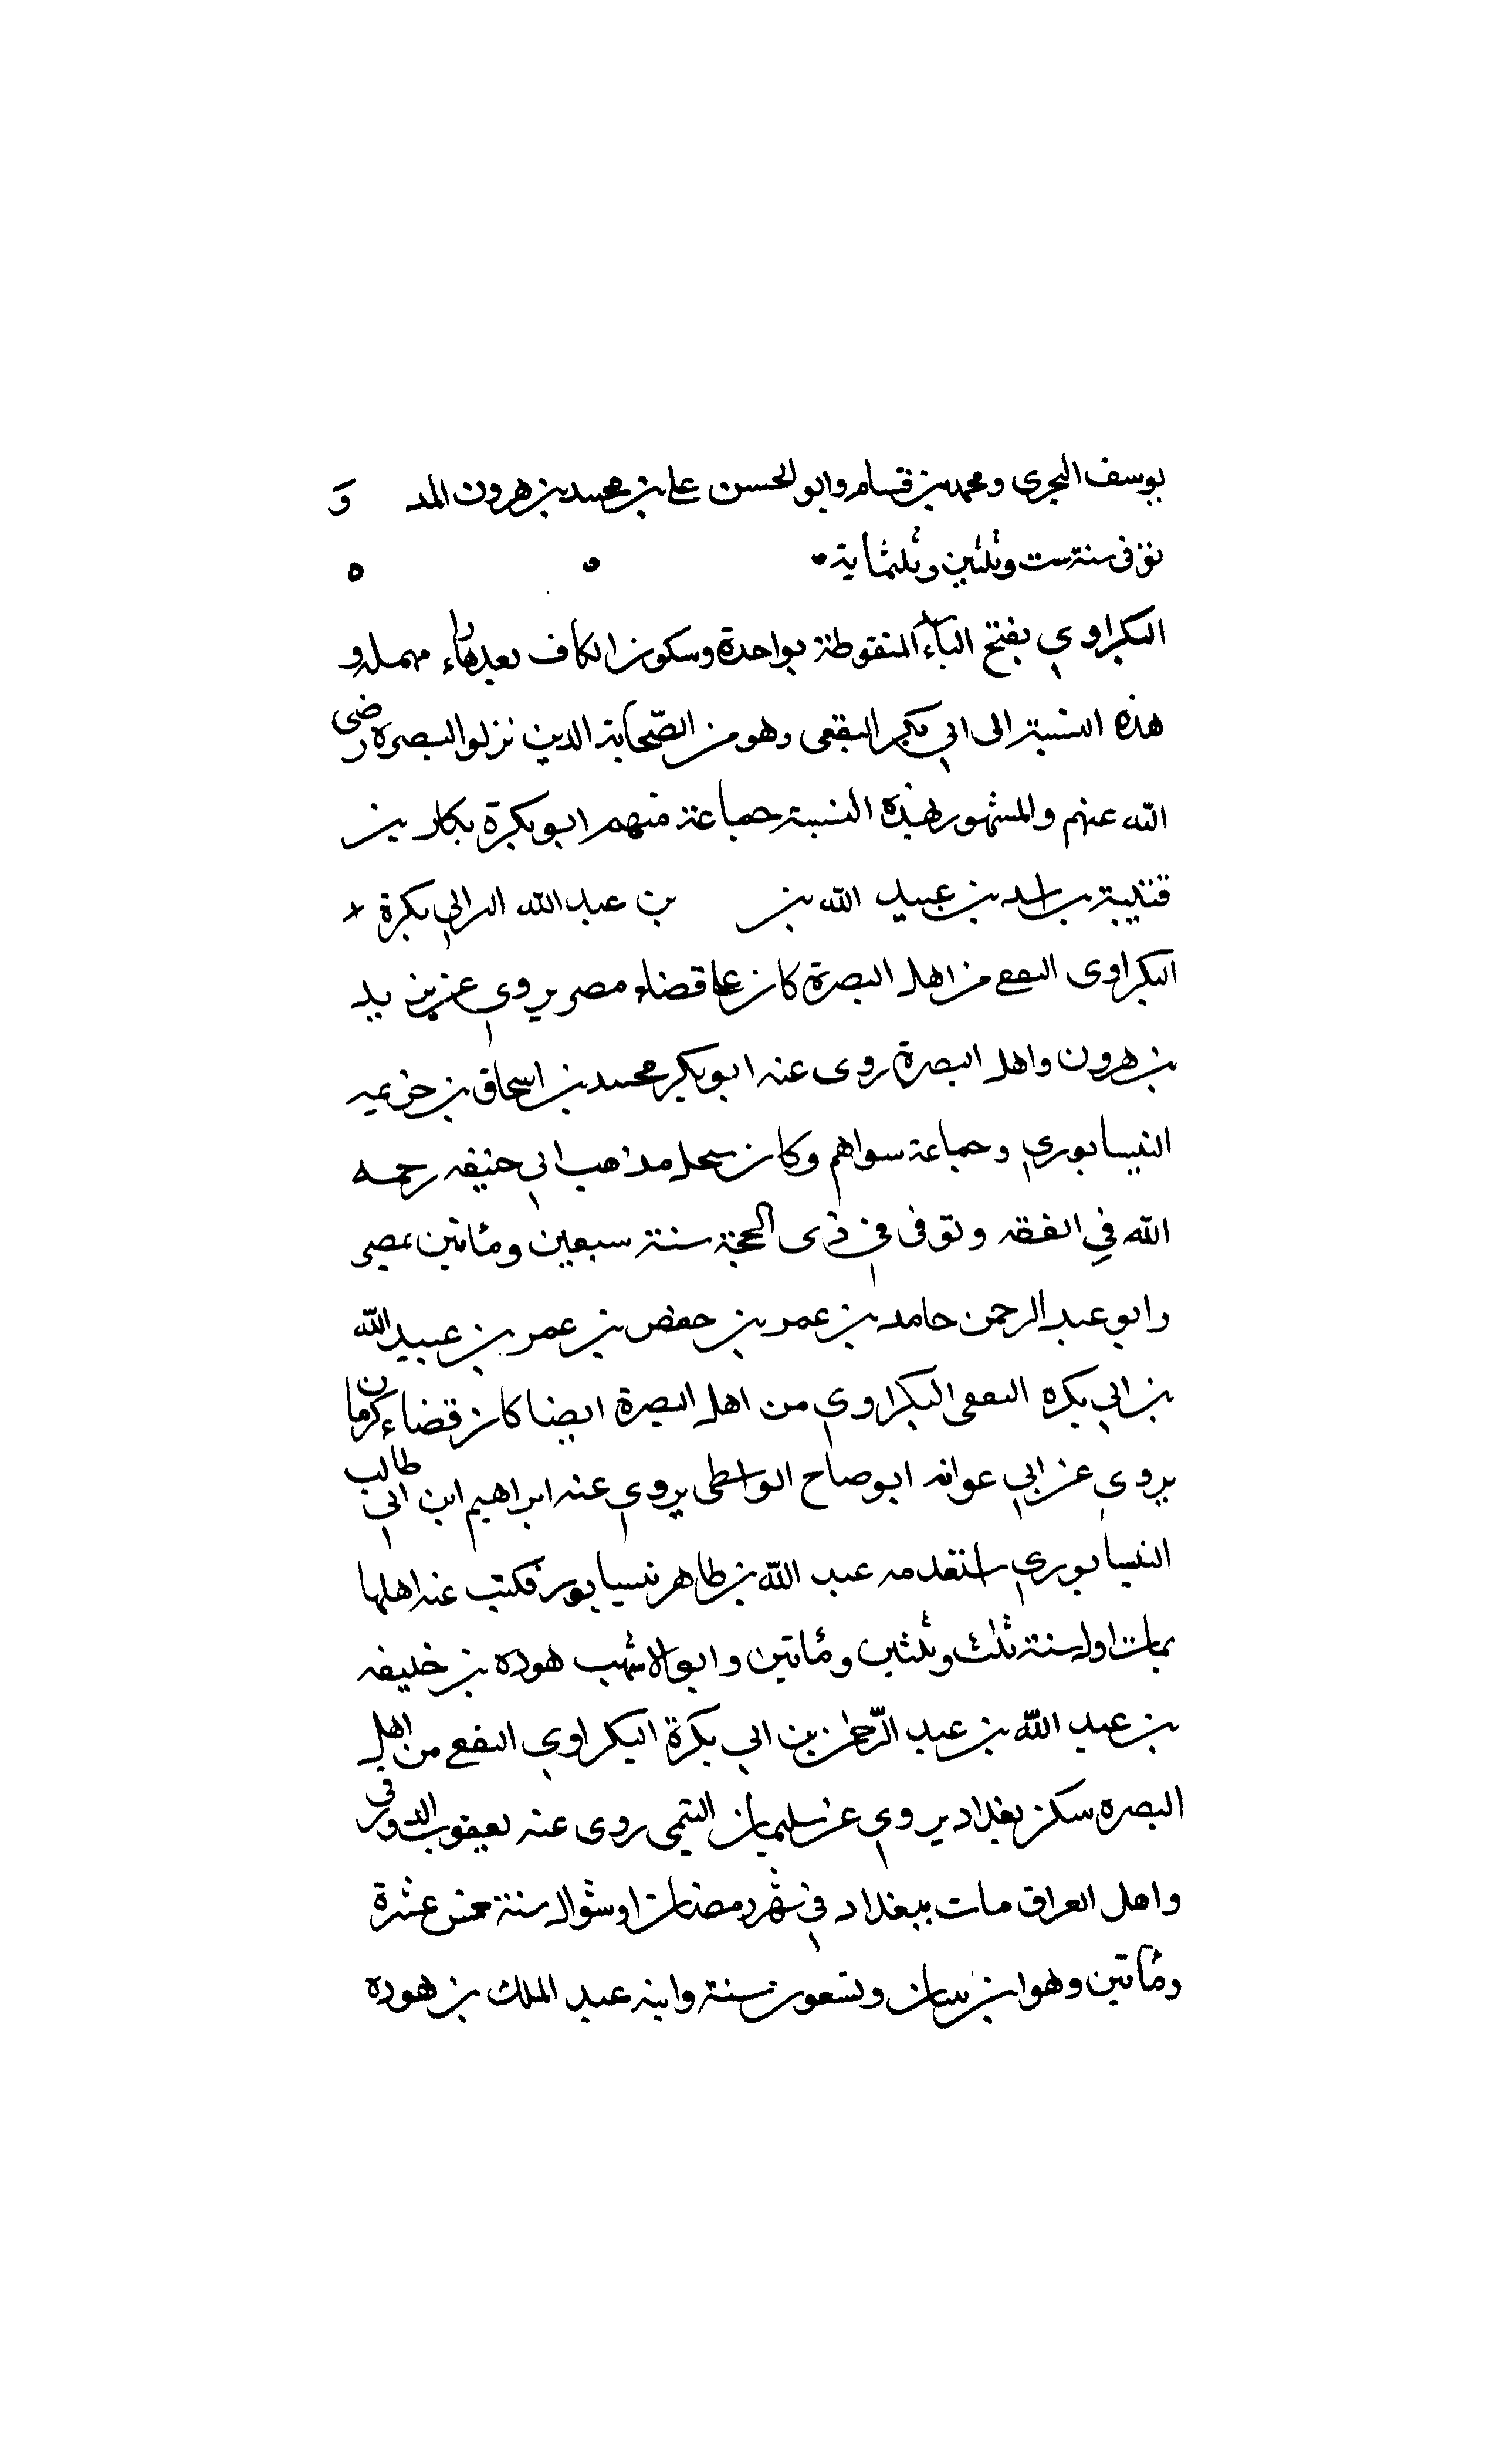 يوسف البجرى ومحمد بن قسام وابو الحسن على بن محمد بن هرون المد و
توفى سنة ست وثلثين وثلثماية
البكراوي بفتح الباء المنقوطة بواحدة وسكون الكاف بعدها راء مهملة و
هذه النسبة الى ابي بكر الثقفى وهو من الصّحابة الذين نزلوا البصرة رضى
الله عنهم والمشهور بهذه النسبة جماعة منهم ابو بكرة بكار بن
قتيبة بن اسد بن عبيد الله بن بن عبد الله ابي بكرة
البكراوى الثقفى من اهل البصرة كان على قضاء مصر يروي عن يزيد
بن هرون واهل البصرة روى عنه ابو بكر محمد بن اسحاق بن خزيمه
النيسابوري وجماعة سواهم وكان ينتحل مذهب ابي حنيفه رحمه
الله في الفقه وتوفى في ذى الحجة سنة سبعين ومأتين بمصر
وابو عبد الرحمن حامد بن عمر بن حفص بن عمر بن عبيد الله
بن ابي بكره الثقفى البكراوي من اهل البصرة ايضا كان قضاء كرمان
يروي عن ابي عوانه ابو صاح الواسطى يروي عنه ابراهيم ابن ابي طالب
النيسابوري استقدمه عبد الله بن طاهر نيسابور فكتب عنه اهلها
مات اول سنة ثلث وثلثين ومأتين وابو الاشهب هوده بن خليفه
بن عبد الله بن عبد الرّحمن بن ابي بكرة البكراوي الثقفى من اهل
البصره سكن بغداد يروي عن سليمان التيمى روى عنه يعقوب الدورقى
واهل العراق مات ببغداد في شهر رمضان او شوال سنة خمس عشرة
ومأتين وهو ابن ثمان وتسعون سنة وابنه عبد الملك بن هوده